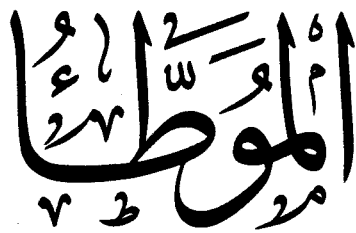 الموَطَّأُ